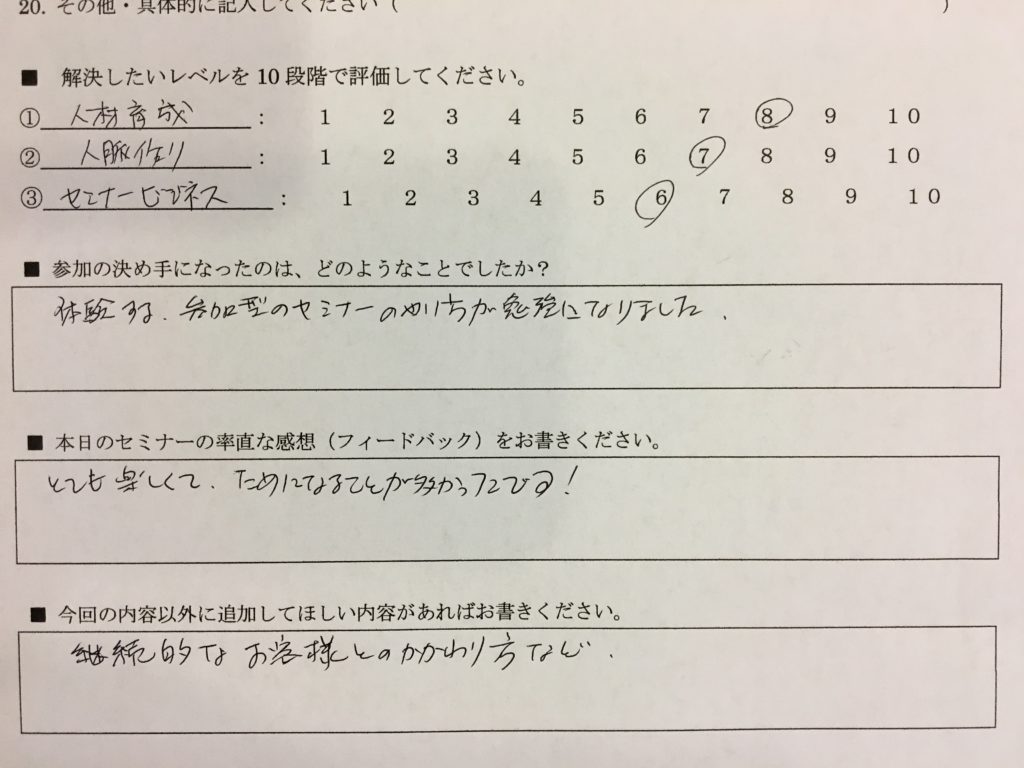 20. その他・具体的に記入してください（ ）
■ 解決したいレベルを 10 段階で評価してください。
① 人材育成 : 1 2 3 4 5 6 7 8 9 10
② 人脈作り : 1 2 3 4 5 6 7 8 9 10
③ セミナービジネス : 1 2 3 4 5 6 7 8 9 10
■ 参加の決め手になったのは、どのようなことでしたか？
体験する、参加型のセミナーのやり方が勉強になりました．
■ 本日のセミナーの率直な感想（フィードバック）をお書きください。
とても楽しくて、ためになることが多かったです！
■ 今回の内容以外に追加してほしい内容があればお書きください。
継続的なお客様とのかかわり方など．